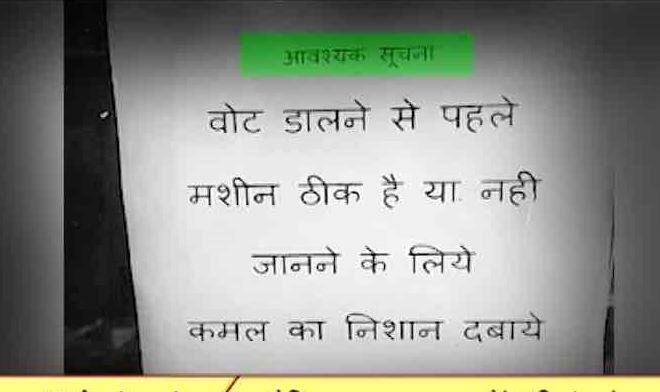 आवश्यक सूचना
वोट डालने से पहले
मशीन ठीक है या. नही
जानने के लिये
कमल का निशान दबाये